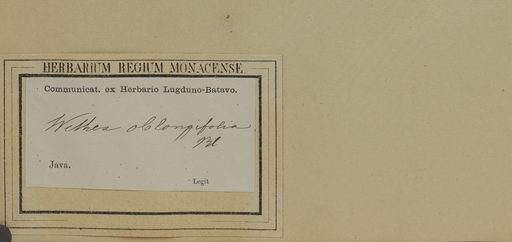 HERBARIUM REGIUM MONACENSE.
Communicat. ex Herbario Lugduno-Batavo.
oblongifolia
Bl
Java.
Legit